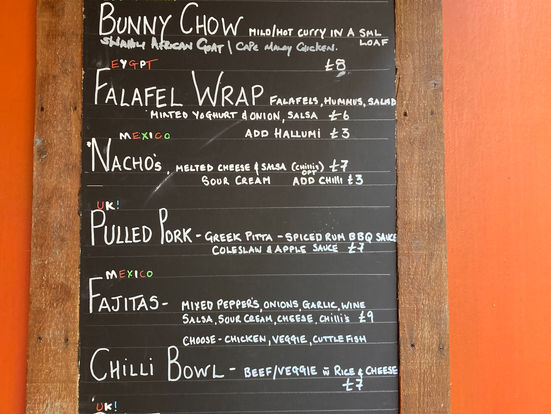 BUNNY CHOW MILD/HOT CURRY IN A SML LOAF
SWAHILI AFRICAN GOAT | CAPE MALAY CHICKEN.
EYGPT £8
FALAFEL WRAP FALAFELS, HUMMUS, SALAD
MINTED YOGHURT & ONION, SALSA £6
MEXICO ADD HALLUMI £3
NACHO'S, MELTED CHEESE & SALSA (CHILLI'S OPT) £7
SOUR CREAM ADD CHILLI £3
UK!
PULLED PORK - GREEK PITTA - SPICED RUM BBQ SAUCE
COLESLAW & APPLE SAUCE £7
MEXICO
FAJITAS - MIXED PEPPER'S, ONIONS, GARLIC, WINE
SALSA, SOUR CREAM, CHEESE, CHILLI'S £9
CHOOSE - CHICKEN, VEGGIE, CUTTLEFISH
CHILLI BOWL - BEEF/VEGGIE W RICE & CHEESE
£7
UK!